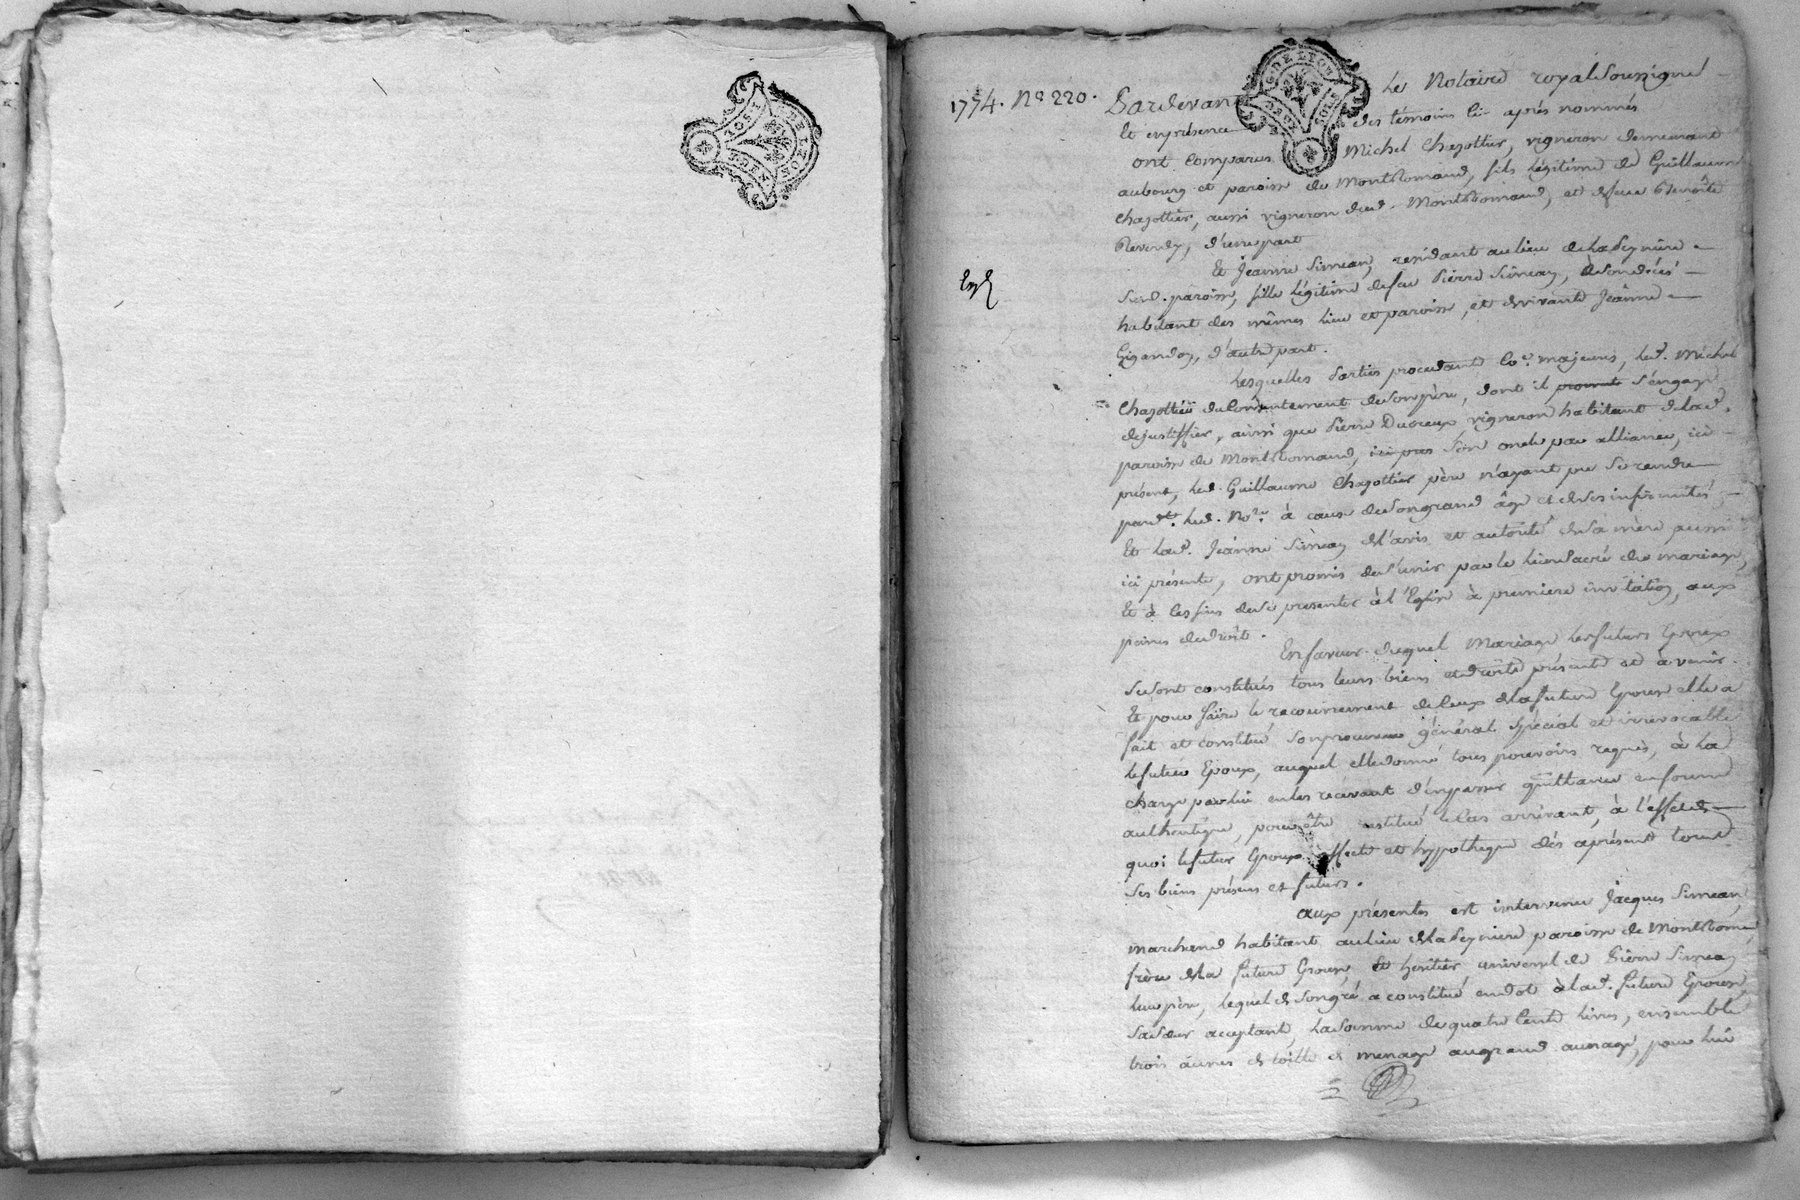 1774. N° 220.
Pardevant le Notaire royal soussigné
et en présence des témoins ci-après nommés
ont comparus Michel Chazottier, vigneron demeurant
au bourg et paroisse de Montromand, fils légitime de Guillaume
Chazottier, aussi vigneron dud. Montromand, et de feue Benoîte
d'une part
Et Jeanne Simean, résidant au lieu de la
susd. paroisse, fille légitime de feu Pierre Simean, à son décès
habitant des mêmes lieu et paroisse, et de vivante Jeanne
d'autre part.
Lesquelles Parties procédant co.e majeures, led. Michel
Chazottier du consentement de son père, dont il promet s'engage
de justiffier, ainsi que Pierre Ducreux vigneron habitant de lad.
paroisse de Montromand, son oncle par alliance, ici
présent, led. Guillaume Chazottier père n'ayant pu se rendre
pard.t led. No.re à cause de son grand âge et de ses infirmités;
Et lad. Jeanne Simean de l'avis et autorité de sa mère aussi
ici présente, ont promis de s'unir par le lien sacré du mariage,
et à ces fins de se présenter à l'Eglise à première invitation, aux
peines de droit.
En faveur duquel Mariage les futurs Epoux
se sont constitués tous leurs biens et droits présents et à venir.
Et pour faire le recouvrement de ceux de la future Epouse elle a
fait et constitué son procureur général, spécial et irrévocable
le futur Epoux, auquel elle donne tous pouvoirs requis, à la
charge par lui en les recevant d'en passer quittance en forme
authentique, pour être restitué le cas arrivant, à l'effet de
quoi le futur Epoux affecte et hypotheque dès à présent tous
ses biens présens et futurs.
Aux présentes est intervenu Jacques Simean,
marchand habitant au lieu de la paroisse de Montromand
frère de la future Epouse, et héritier universel de Pierre Simean
leur père, lequel de son gré a constitué en dot à lad. future Epouse,
sa sœur acceptant, la somme de quatre cents livres, ensemble
trois aunes de toille de menage au grand aunage, pour lui